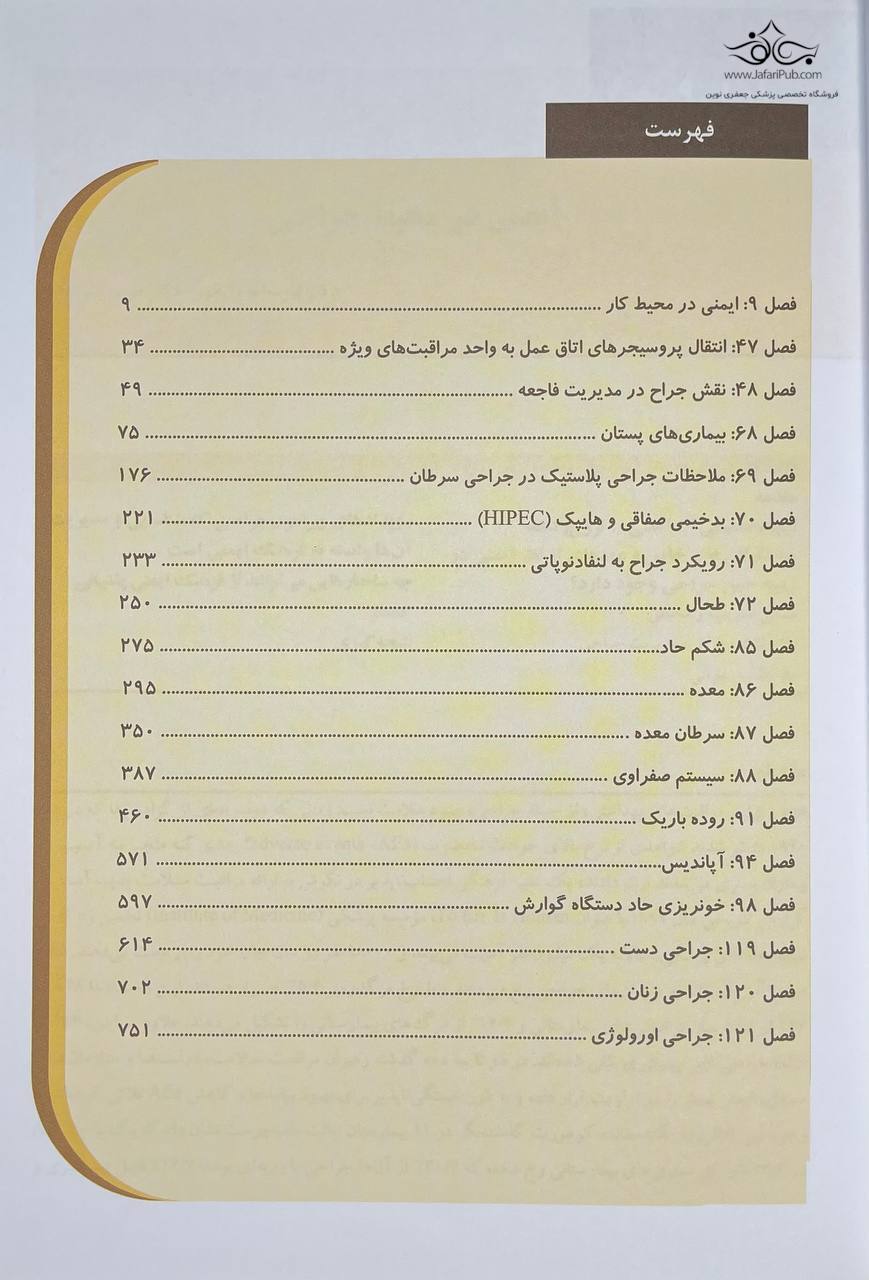 www.JafariPub.com
فروشگاه تخصصی پزشکی جعفری نوین
فهرست
فصل ۹: ایمنی در محیط کار ۹
فصل ۴۷: انتقال پروسیجرهای اتاق عمل به واحد مراقبت‌های ویژه ۳۴
فصل ۴۸: نقش جراح در مدیریت فاجعه ۴۹
فصل ۶۸: بیماری‌های پستان ۷۵
فصل ۶۹: ملاحظات جراحی پلاستیک در جراحی سرطان ۱۷۶
فصل ۷۰: بدخیمی صفاقی و هایپک (HIPEC) ۲۲۱
فصل ۷۱: رویکرد جراح به لنفادنوپاتی ۲۳۳
فصل ۷۲: طحال ۲۵۰
فصل ۸۵: شکم حاد ۲۷۵
فصل ۸۶: معده ۲۹۵
فصل ۸۷: سرطان معده ۳۵۰
فصل ۸۸: سیستم صفراوی ۳۸۷
فصل ۹۱: روده باریک ۴۶۰
فصل ۹۴: آپاندیس ۵۷۱
فصل ۹۸: خونریزی حاد دستگاه گوارش ۵۹۷
فصل ۱۱۹: جراحی دست ۶۱۴
فصل ۱۲۰: جراحی زنان ۷۰۲
فصل ۱۲۱: جراحی اورولوژی ۷۵۱